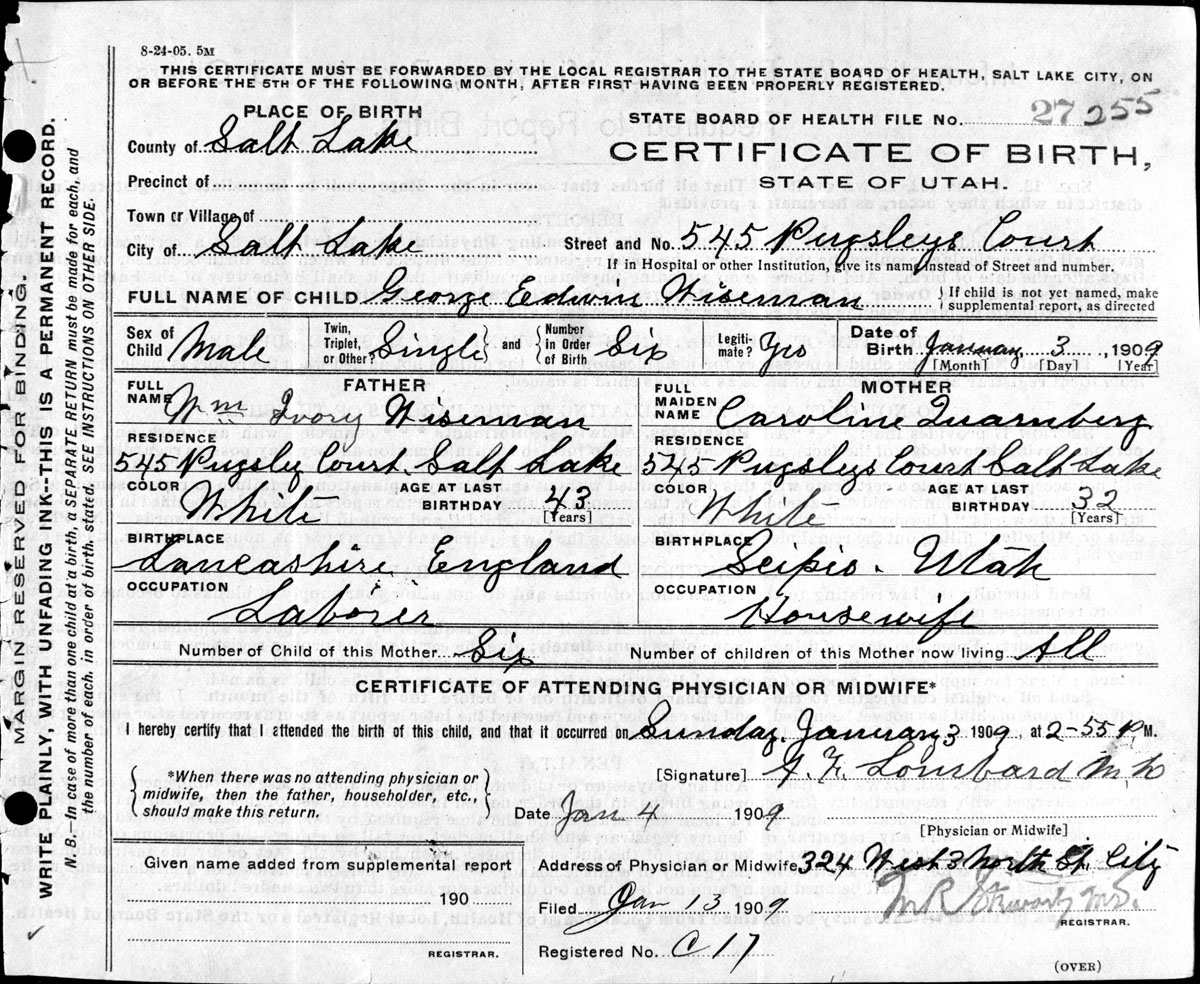 8-24-05. 5M
THIS CERTIFICATE MUST BE FORWARDED BY THE LOCAL REGISTRAR TO THE STATE BOARD OF HEALTH, SALT LAKE CITY, ON
OR BEFORE THE 5TH OF THE FOLLOWING MONTH, AFTER FIRST HAVING BEEN PROPERLY REGISTERED.
PLACE OF BIRTH
STATE BOARD OF HEALTH FILE No. 27 255
County of Salt Lake
CERTIFICATE OF BIRTH,
Precinct of
STATE OF UTAH.
Town or Village of
City of Salt Lake Street and No. 545 Pugsleys Court
If in Hospital or other Institution, give its name instead of Street and number.
FULL NAME OF CHILD George Edwin Wiseman { If child is not yet named, make
supplemental report, as directed
Sex of Child Male Twin, Triplet, or Other? Single } and { Number in Order of Birth Six Legiti- mate? Yes Date of Birth January 3, 1909
[Month] [Day] [Year]
FATHER
FULL NAME Wm Ivory Wiseman
RESIDENCE
545 Pugsley Court, Salt Lake
COLOR White AGE AT LAST BIRTHDAY 43
[Years]
BIRTHPLACE
Lancashire England
OCCUPATION
Laborer
MOTHER
FULL MAIDEN NAME Caroline Quarnberg
RESIDENCE
545 Pugsleys Court Salt Lake
COLOR White AGE AT LAST BIRTHDAY 32
[Years]
BIRTHPLACE
Scipio. Utah
OCCUPATION
Housewife
Number of Child of this Mother Six Number of children of this Mother now living All
CERTIFICATE OF ATTENDING PHYSICIAN OR MIDWIFE*
I hereby certify that I attended the birth of this child, and that it occurred on Sunday, January 3 1909, at 2-55 P M.
{ *When there was no attending physician or
midwife, then the father, householder, etc.,
should make this return. }
[Signature] Lombard M D
Date Jan 4 1909
[Physician or Midwife]
Given name added from supplemental report
190
REGISTRAR.
Address of Physician or Midwife 324 West 3 North St. City
Filed Jan 13 1909 M R Stewart M.D.
REGISTRAR.
Registered No. C 17
(OVER)
MARGIN RESERVED FOR BINDING.
WRITE PLAINLY, WITH UNFADING INK--THIS IS A PERMANENT RECORD.
N. B.--In case of more than one child at a birth, a SEPARATE RETURN must be made for each, and
the number of each, in order of birth stated. SEE INSTRUCTIONS ON OTHER SIDE.